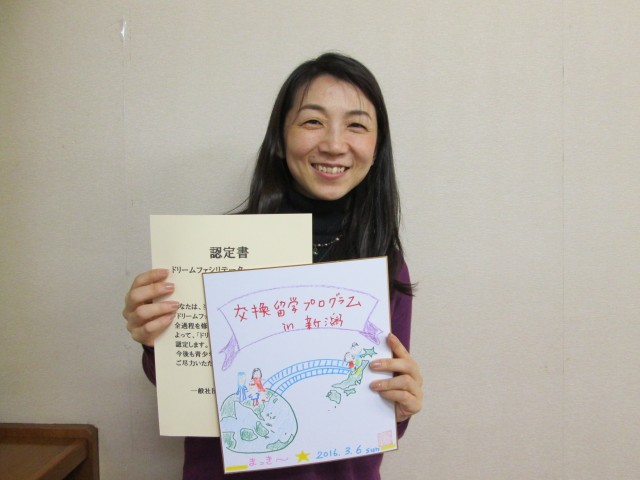 認定書
ドリームファシリテータ
なたは、
ドリームファ
全過程を修
よって、「ドリ
認定します。
今後も青少
ご尽力いただ
一般社
交換留学プログラム
in 新潟
まっき〜
2016.3.6 sun